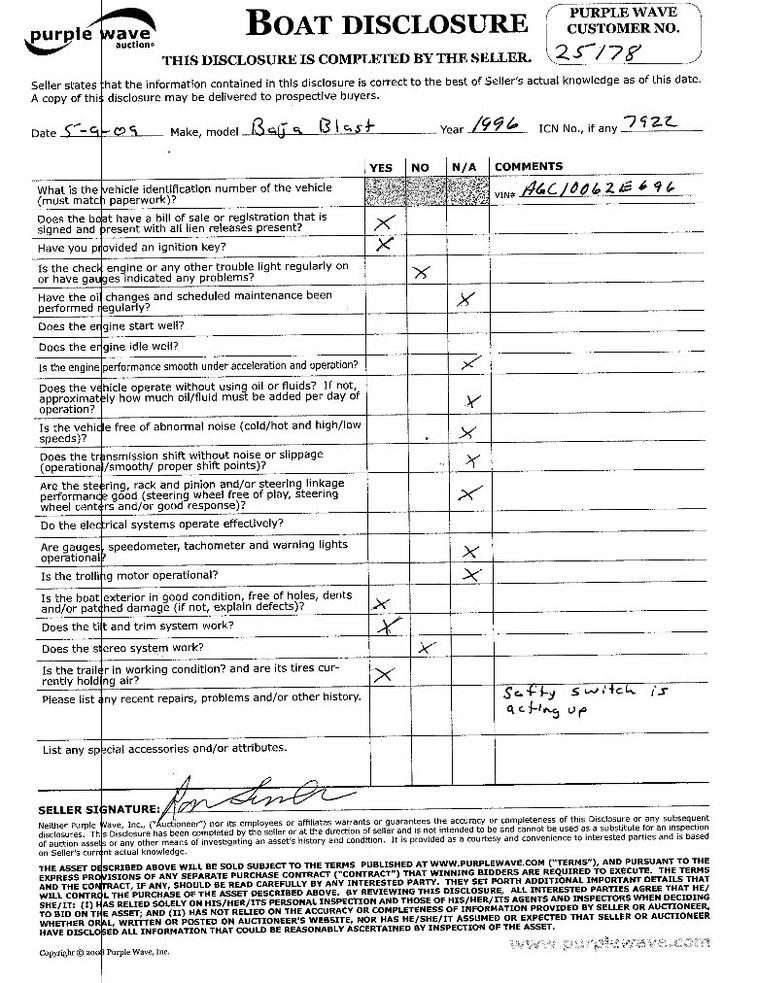 purple wave
auction®
BOAT DISCLOSURE
PURPLE WAVE
CUSTOMER NO.
25178
THIS DISCLOSURE IS COMPLETED BY THE SELLER.
Seller states that the information contained in this disclosure is correct to the best of Seller's actual knowledge as of this date.
A copy of this disclosure may be delivered to prospective buyers.
Date 5-9-09 Make, model Baja Blast Year 1996 ICN No., if any 7922
YES NO N/A COMMENTS
What is the vehicle identification number of the vehicle
(must match paperwork)?
VIN# AGC10062E696
Does the boat have a bill of sale or registration that is
signed and present with all lien releases present? X
Have you provided an ignition key? X
Is the check engine or any other trouble light regularly on
or have gauges indicated any problems? X
Have the oil changes and scheduled maintenance been
performed regularly? X
Does the engine start well?
Does the engine idle well?
Is the engine performance smooth under acceleration and operation? X
Does the vehicle operate without using oil or fluids? If not,
approximately how much oil/fluid must be added per day of
operation? X
Is the vehicle free of abnormal noise (cold/hot and high/low
speeds)? X
Does the transmission shift without noise or slippage
(operational/smooth/ proper shift points)? X
Are the steering, rack and pinion and/or steering linkage
performance good (steering wheel free of play, steering
wheel centers and/or good response)? X
Do the electrical systems operate effectively?
Are gauges, speedometer, tachometer and warning lights
operational? X
Is the trolling motor operational? X
Is the boat exterior in good condition, free of holes, dents
and/or patched damage (if not, explain defects)? X
Does the tilt and trim system work? X
Does the stereo system work? X
Is the trailer in working condition? and are its tires cur-
rently holding air? X
Please list any recent repairs, problems and/or other history.
Safty switch is
acting up
List any special accessories and/or attributes.
SELLER SIGNATURE:
Neither Purple Wave, Inc., ("Auctioneer") nor its employees or affiliates warrants or guarantees the accuracy or completeness of this Disclosure or any subsequent
disclosures. This Disclosure has been completed by the seller or at the direction of seller and is not intended to be and cannot be used as a substitute for an inspection
of auction assets or any other means of investigating an asset's history and condition. It is provided as a courtesy and convenience to interested parties and is based
on Seller's current actual knowledge.
THE ASSET DESCRIBED ABOVE WILL BE SOLD SUBJECT TO THE TERMS PUBLISHED AT WWW.PURPLEWAVE.COM ("TERMS"), AND PURSUANT TO THE
EXPRESS PROVISIONS OF ANY SEPARATE PURCHASE CONTRACT ("CONTRACT") THAT WINNING BIDDERS ARE REQUIRED TO EXECUTE. THE TERMS
AND THE CONTRACT, IF ANY, SHOULD BE READ CAREFULLY BY ANY INTERESTED PARTY. THEY SET FORTH ADDITIONAL IMPORTANT DETAILS THAT
WILL CONTROL THE PURCHASE OF THE ASSET DESCRIBED ABOVE. BY REVIEWING THIS DISCLOSURE, ALL INTERESTED PARTIES AGREE THAT HE/
SHE/IT: (I) HAS RELIED SOLELY ON HIS/HER/ITS PERSONAL INSPECTION AND THOSE OF HIS/HER/ITS AGENTS AND INSPECTORS WHEN DECIDING
TO BID ON THE ASSET; AND (II) HAS NOT RELIED ON THE ACCURACY OR COMPLETENESS OF INFORMATION PROVIDED BY SELLER OR AUCTIONEER,
WHETHER ORAL, WRITTEN OR POSTED ON AUCTIONEER'S WEBSITE, NOR HAS HE/SHE/IT ASSUMED OR EXPECTED THAT SELLER OR AUCTIONEER
HAVE DISCLOSED ALL INFORMATION THAT COULD BE REASONABLY ASCERTAINED BY INSPECTION OF THE ASSET.
www.purplewave.com
Copyright © 2008 Purple Wave, Inc.